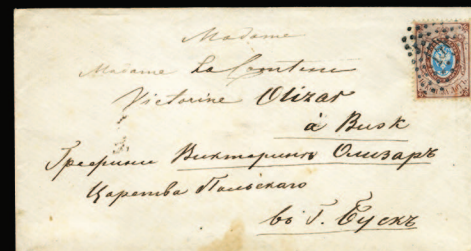 Madame
Madame La Comtesse
Victorine Olizar
à Busk
Графини Викторинѣ Олизаръ
Царства Польскаго
въ Г. Бускъ